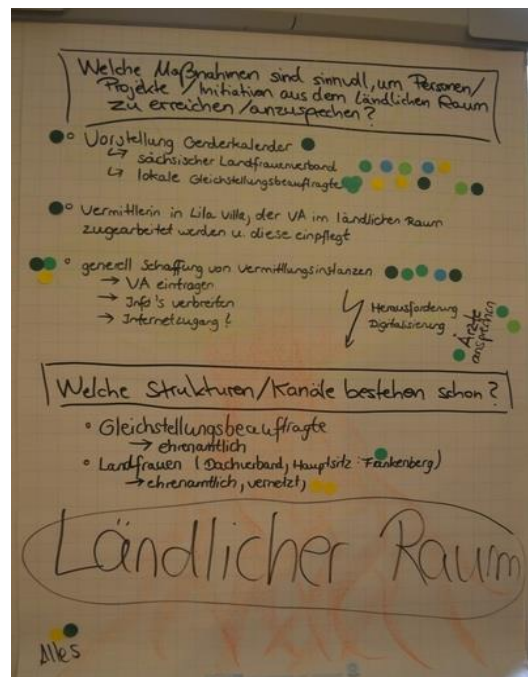 Welche Maßnahmen sind sinnvoll, um Personen/
Projekte/Initiativen aus dem ländlichen Raum
zu erreichen/anzusprechen?
Vorstellung Genderkalender
↳ sächsischer Landfrauenverband
↳ lokale Gleichstellungsbeauftragte
Vermittlerin in Lila Villa, der VA im ländlichen Raum
zugearbeitet werden u. diese einpflegt
generell Schaffung von Vermittlungsinstanzen
→ VA eintragen
→ Info's verbreiten
→ Internetzugang!
Herausforderung
Digitalisierung
Ärzte
ansprechen
Welche Strukturen/Kanäle bestehen schon?
Gleichstellungsbeauftragte
→ ehrenamtlich
Landfrauen (Dachverband, Hauptsitz: Frankenberg)
→ ehrenamtlich, vernetzt,
Ländlicher Raum
Alles